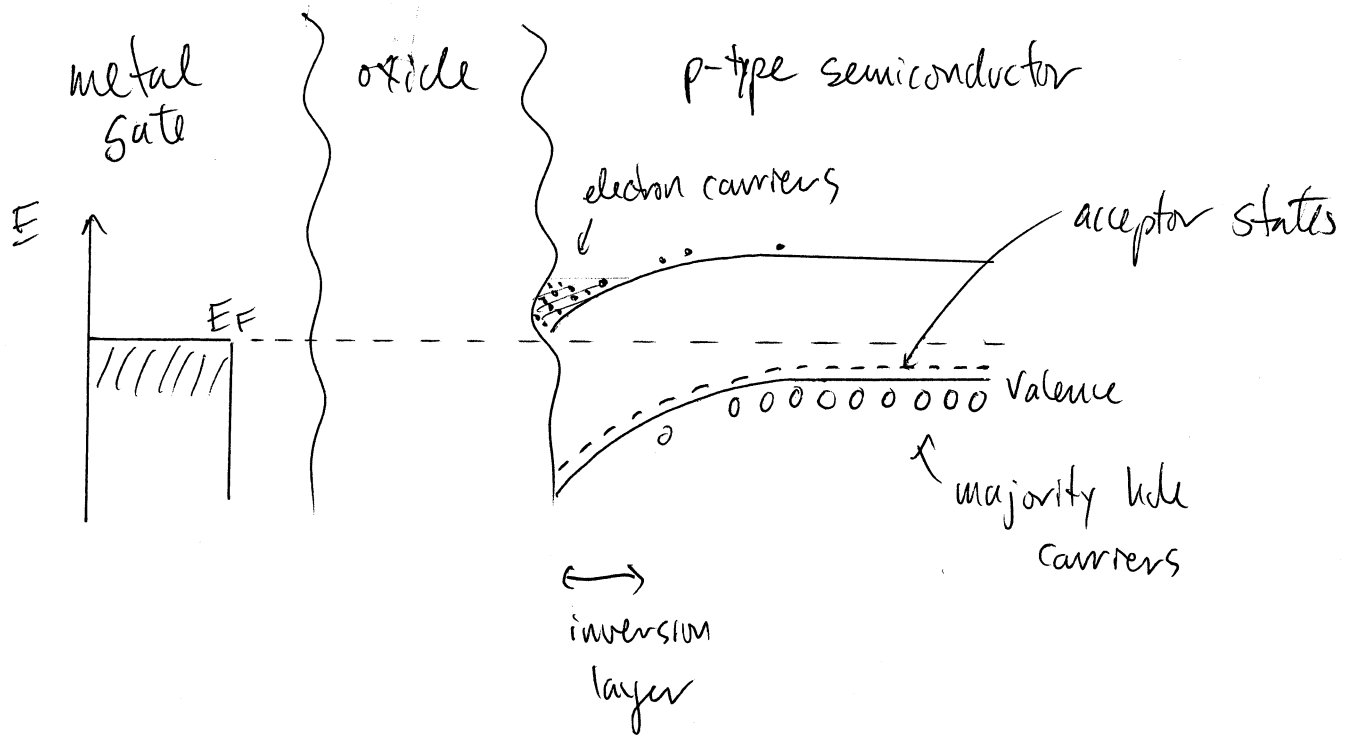 metal
gate
oxide
p-type semiconductor
electron carriers
acceptor states
E
EF
Valence
majority hole
carriers
inversion
layer